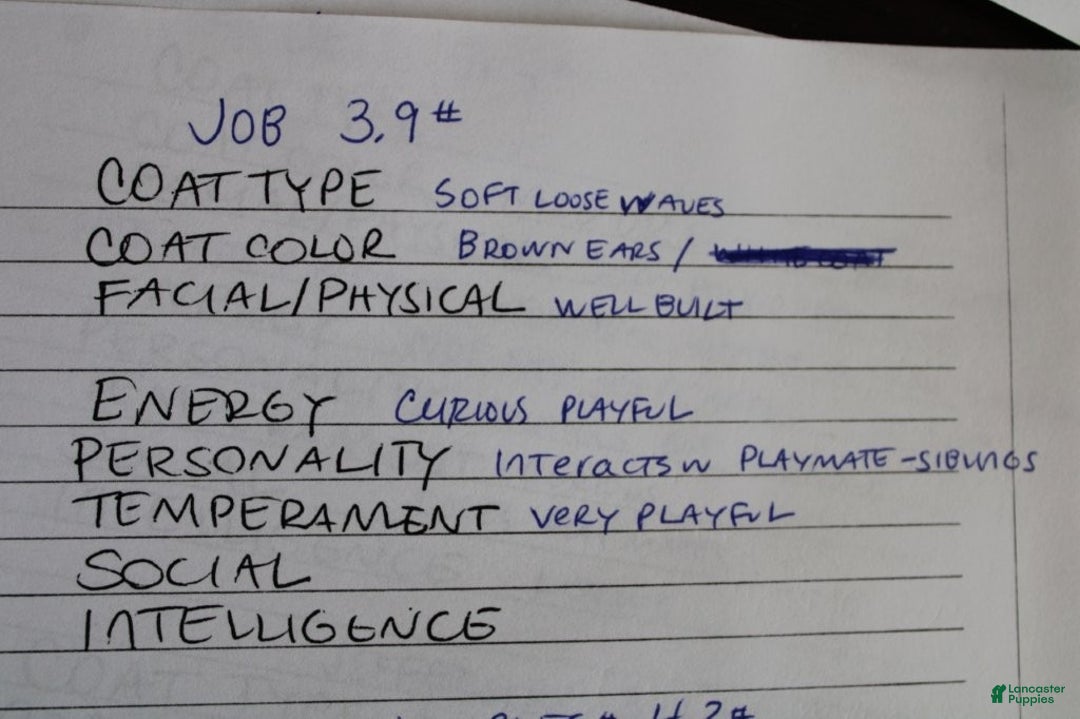 JOB 3.9#
COAT TYPE SOFT LOOSE WAVES
COAT COLOR BROWN EARS /
FACIAL/PHYSICAL WELL BUILT
ENERGY CURIOUS PLAYFUL
PERSONALITY INTERACTS W PLAYMATE-SIBLINGS
TEMPERAMENT VERY PLAYFUL
SOCIAL
INTELLIGENCE
4.2#
Lancaster
Puppies